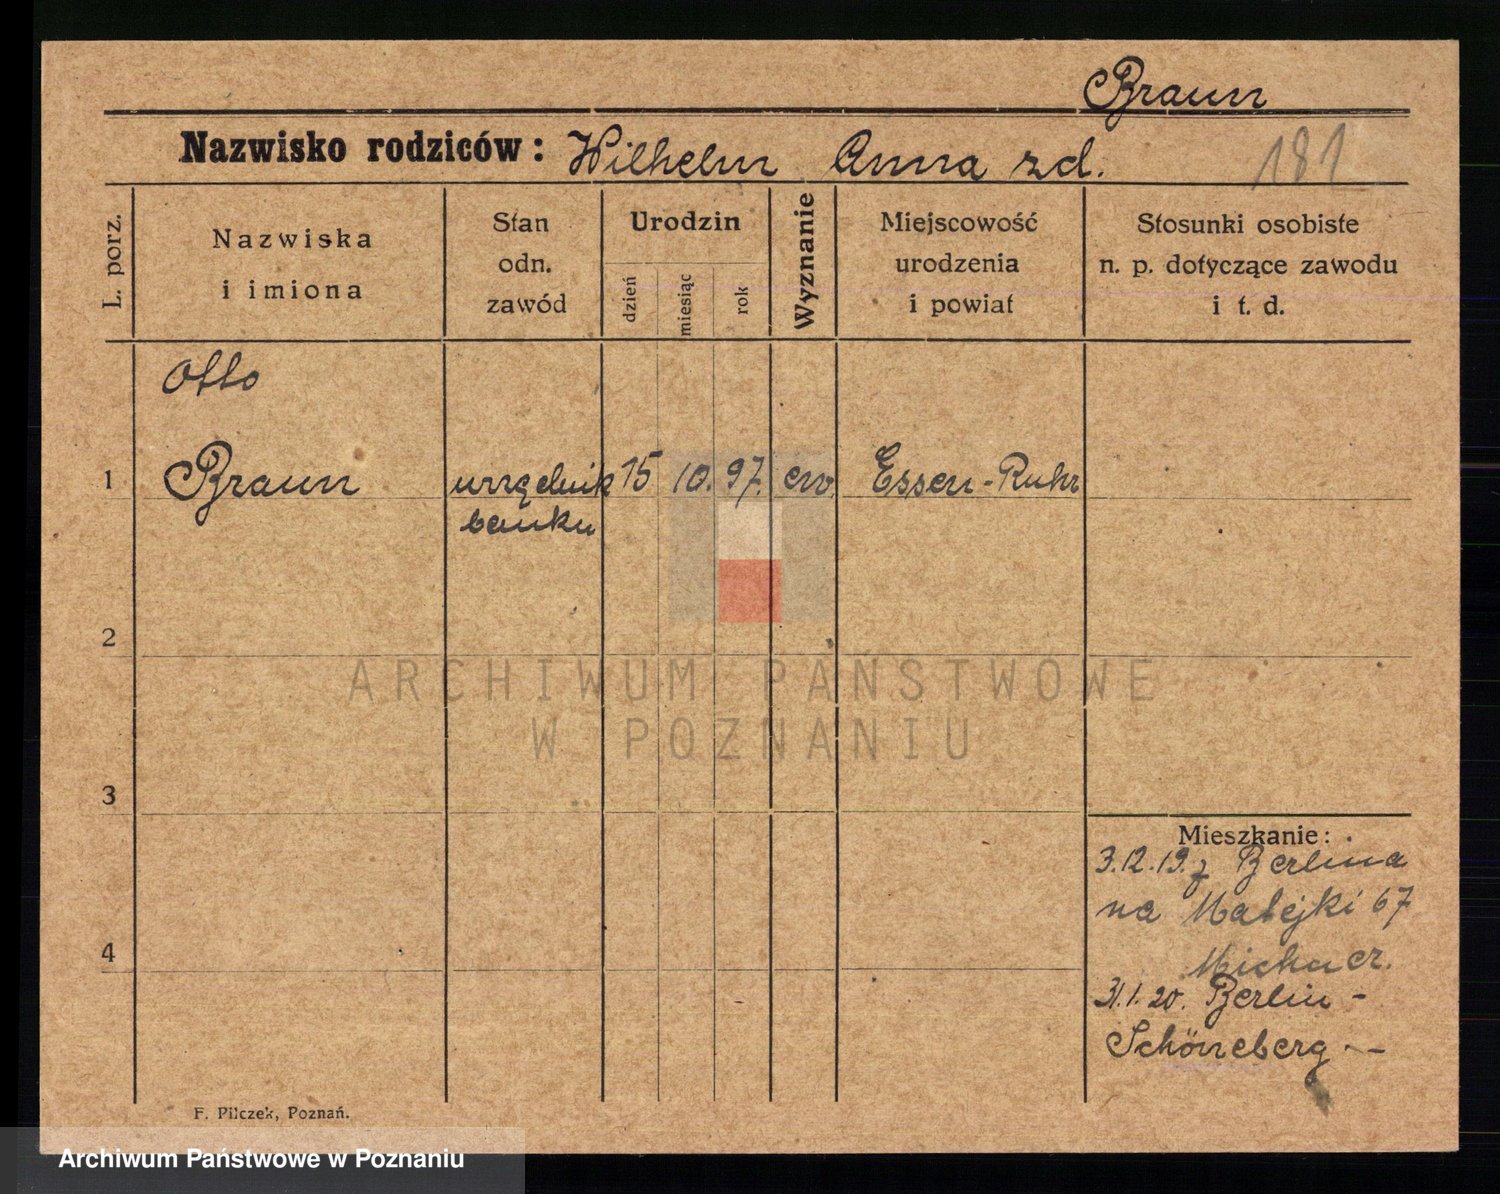 Braun
Nazwisko rodziców: Wilhelm Anna zd.
181
L. porz.
Nazwiska
i imiona
Stan
odn.
zawód
Urodzin
dzień
miesiąc
rok
Wyznanie
Miejscowość
urodzenia
i powiat
Stosunki osobiste
n. p. dotyczące zawodu
i t. d.
Otto
1 Braun urzędnik 15 10. 97. ew Essen-Ruhr
banku
2
ARCHIWUM PAŃSTWOWE
W POZNANIU
3
Mieszkanie:
3.12.19. z Berlina
na Matejki 67
4
31.1.20. Berlin-
Schöneberg
F. Pilczek, Poznań.
Archiwum Państwowe w Poznaniu